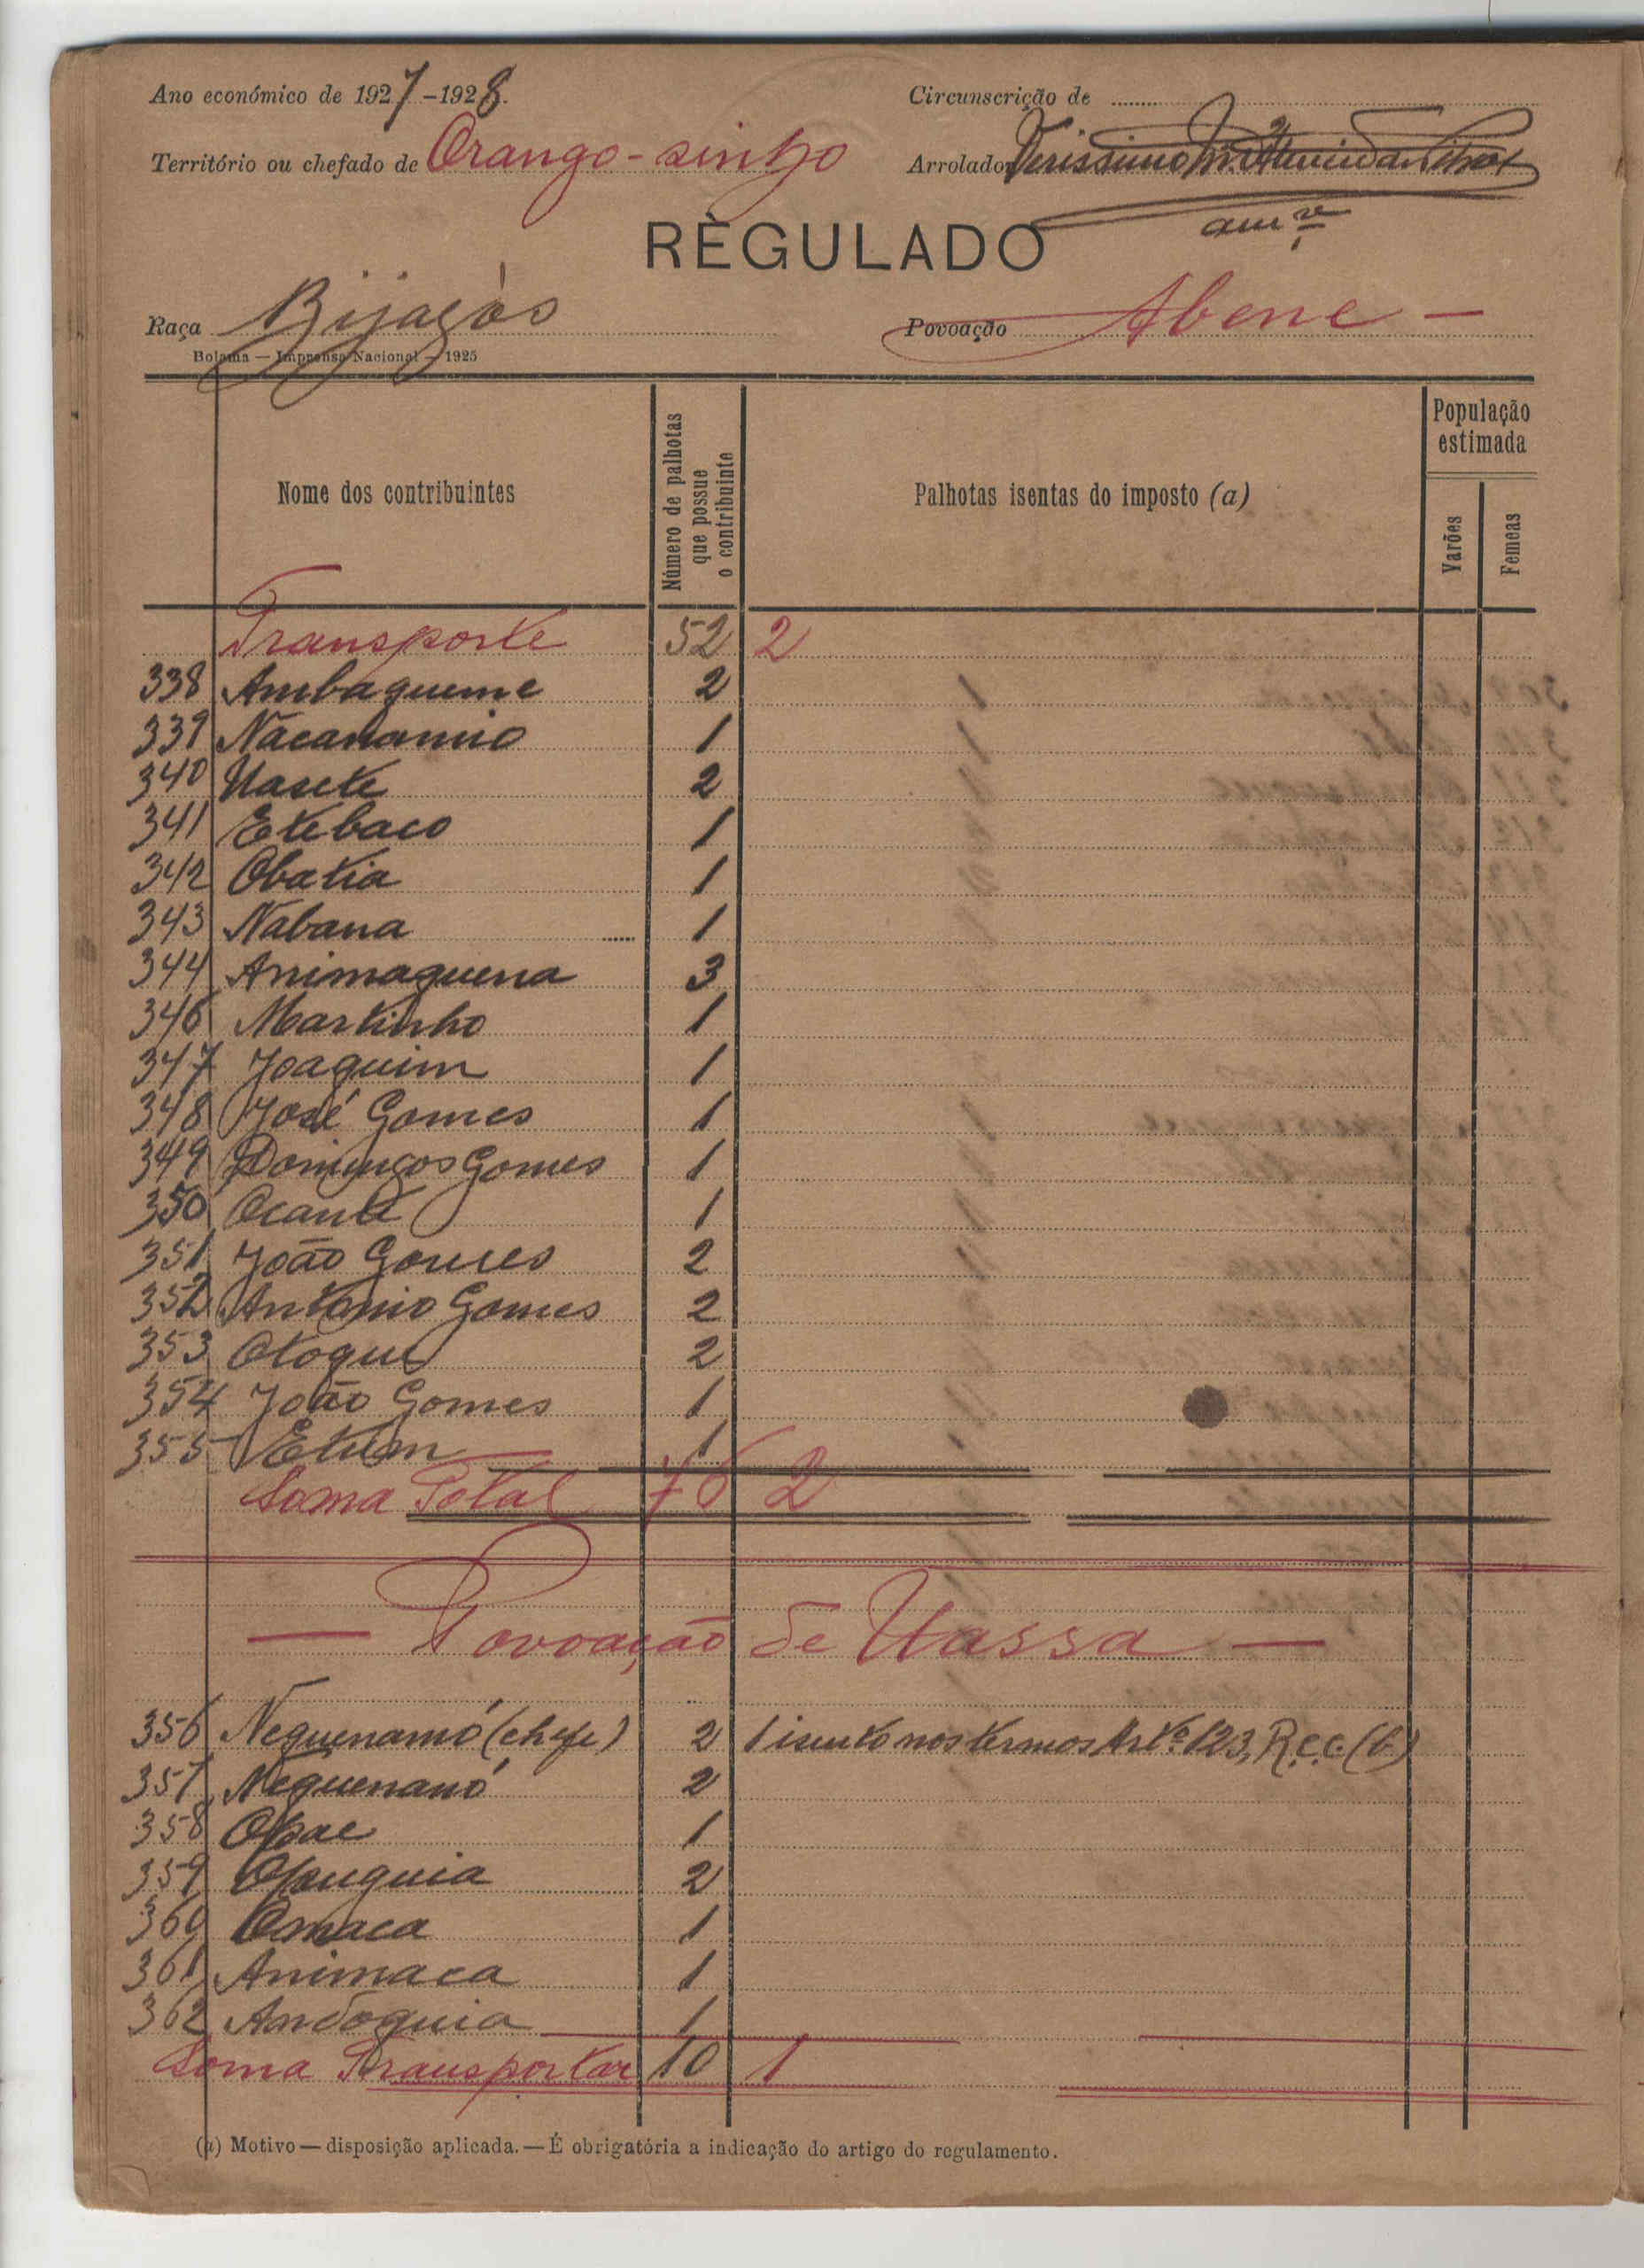 Ano económico de 1927-1928.
Circunscrição de
Território ou chefado de Orango-sinho
Arrolador Verissimo
REGULADO
Raça Bijagós
Povoação Abene —
Bolama — Imprensa Nacional — 1925
Nome dos contribuintes
Número de palhotas que possue o contribuinte
Palhotas isentas do imposto (a)
População estimada
Varões
Femeas
Transporte 52 2
338 Ambagueme 2
339 Nacanamio 1
340 Uasete 2
341 Etebaco 1
342 Obatia 1
343 Nabana 1
344 Animaguena 3
346 Martinho 1
347 Joaquim 1
348 José Gomes 1
349 Domingos Gomes 1
350 Ocante 1
351 João Gomes 2
352 Antonio Gomes 2
353 Otogue 2
354 João Gomes 1
355 Etum 1
Soma Total 76 2
— Povoação de Uassa —
356 Neguenamó (chefe) 2 1 isento nos termos Artº 123, R.C.C. (b)
357 Neguenanó 2
358 Opae 1
359 Opuguia 2
360 Omaca 1
361 Animaca 1
362 Andoguia 1
Soma Transportar 10 1
(a) Motivo — disposição aplicada. — É obrigatória a indicação do artigo do regulamento.